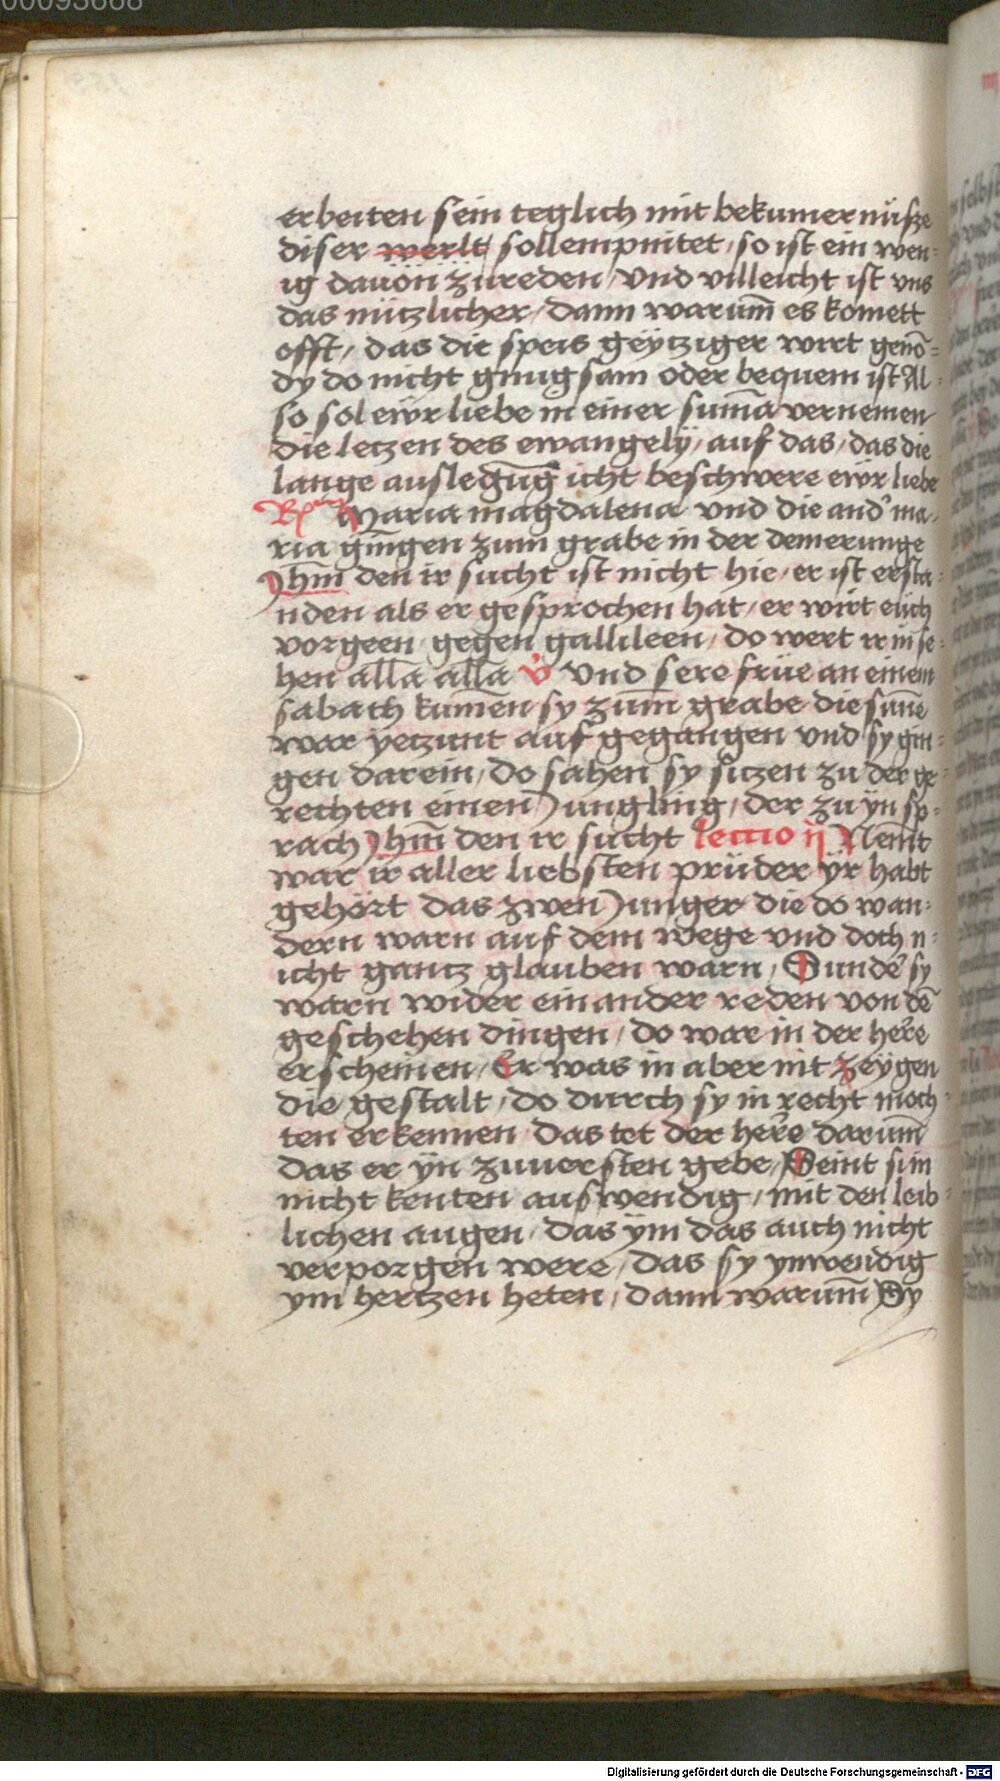 00093668
erbeiten sein teglich mit bekumernüsze
diser werlt sollempnitet / so ist ein wen-
ig dauön zů reden / Vnd villeicht ist vns
das nützlicher / dann warum̄ es komett
offt / das die speis geÿtziger wirt genō-
dy do nicht gnugsam oder bequem ist Al-
so sol eẅr liebe in einer sum̄a vernemen
die letzen des ewangelÿ / auf das / das die
lange auslegu̅g icht beschwere eẅr liebe
Maria magdalena vnd die and' ma-
ria gingen zum grabe in der demerunge
Jhm̄ den ir sucht ist nicht hie / er ist ersta-
nden als er gesprochen hat / er wirt eüch
vorgeen gegen gallileen / do wert ir in se-
hen alla alla v̊ Vnd sere früe an einem
sabath kumen sy zum̄ grabe die sun̄e
war yetzunt auf gegangen vnd sy gin-
gen darein / do sahen sy sitzen zu der ge-
rechten einen Jungling / der zu ÿn sp-
rach Jhm̄ den ir sucht lectio ij Nemt
war ir aller liebsten prüder ÿr habt
gehört das zwen Junger die do wan-
dern warn auf dem wege vnd doch n-
icht gantz glauben warn / Sunde' sy
warn wider ein ander reden von dē
geschehen dingen / do war in der her̄e
erscheinen / Er was in aber nit zeÿgen
die gestalt / do durch sy in recht moch-
ten erkennen das tet der her̄e darum̄
das er ÿn zuuersten gebe / Seint si in
nicht kenten auswendig / mit den leib-
lichen augen / das ÿm das auch nicht
verporgen were / das sy ynwendig
ym hertzen heten / dann warum̄ Sy
Digitalisierung gefördert durch die Deutsche Forschungsgemeinschaft - DFG